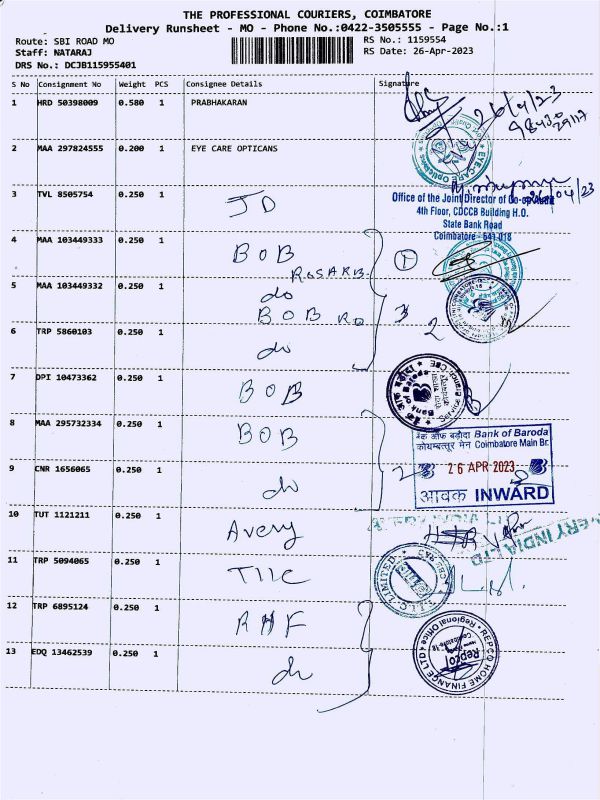 THE PROFESSIONAL COURIERS, COIMBATORE
Delivery Runsheet - MO - Phone No.:0422-3505555 - Page No.:1
Route: SBI ROAD MO
RS No.: 1159554
Staff: NATARAJ
RS Date: 26-Apr-2023
DRS No.: DCJB115955401
S No Consignment No Weight PCS Consignee Details Signature
1 HRD 50398009 0.580 1 PRABHAKARAN
26/4/23
98430
29117
2 MAA 297824555 0.200 1 EYE CARE OPTICANS
EYE-CARE Opticians
04/23
3 TVL 8505754 0.250 1 JD
Office of the Joint Director of Co-op Audit
4th Floor, CDCCB Building H.O.
State Bank Road
Coimbatore - 641 018
4 MAA 103449333 0.250 1 BOB
1
5 MAA 103449332 0.250 1 do
BOB RO
3 2
6 TRP 5860103 0.250 1 do
7 DPI 10473362 0.250 1 BOB
Bank of Baroda
8 MAA 295732334 0.250 1 BOB
बैंक ऑफ बड़ौदा Bank of Baroda
कोयम्बत्तूर मेन Coimbatore Main Br.
26 APR 2023
आवक INWARD
9 CNR 1656065 0.250 1 do
2
10 TUT 1121211 0.250 1 Avery
AVERY INDIA LTD
11 TRP 5094065 0.250 1 TIIC
T.I.I.C. LIMITED
12 TRP 6895124 0.250 1 RHF
REPCO HOME FINANCE LTD
Regional Office
Repco
13 EDQ 13462539 0.250 1 do